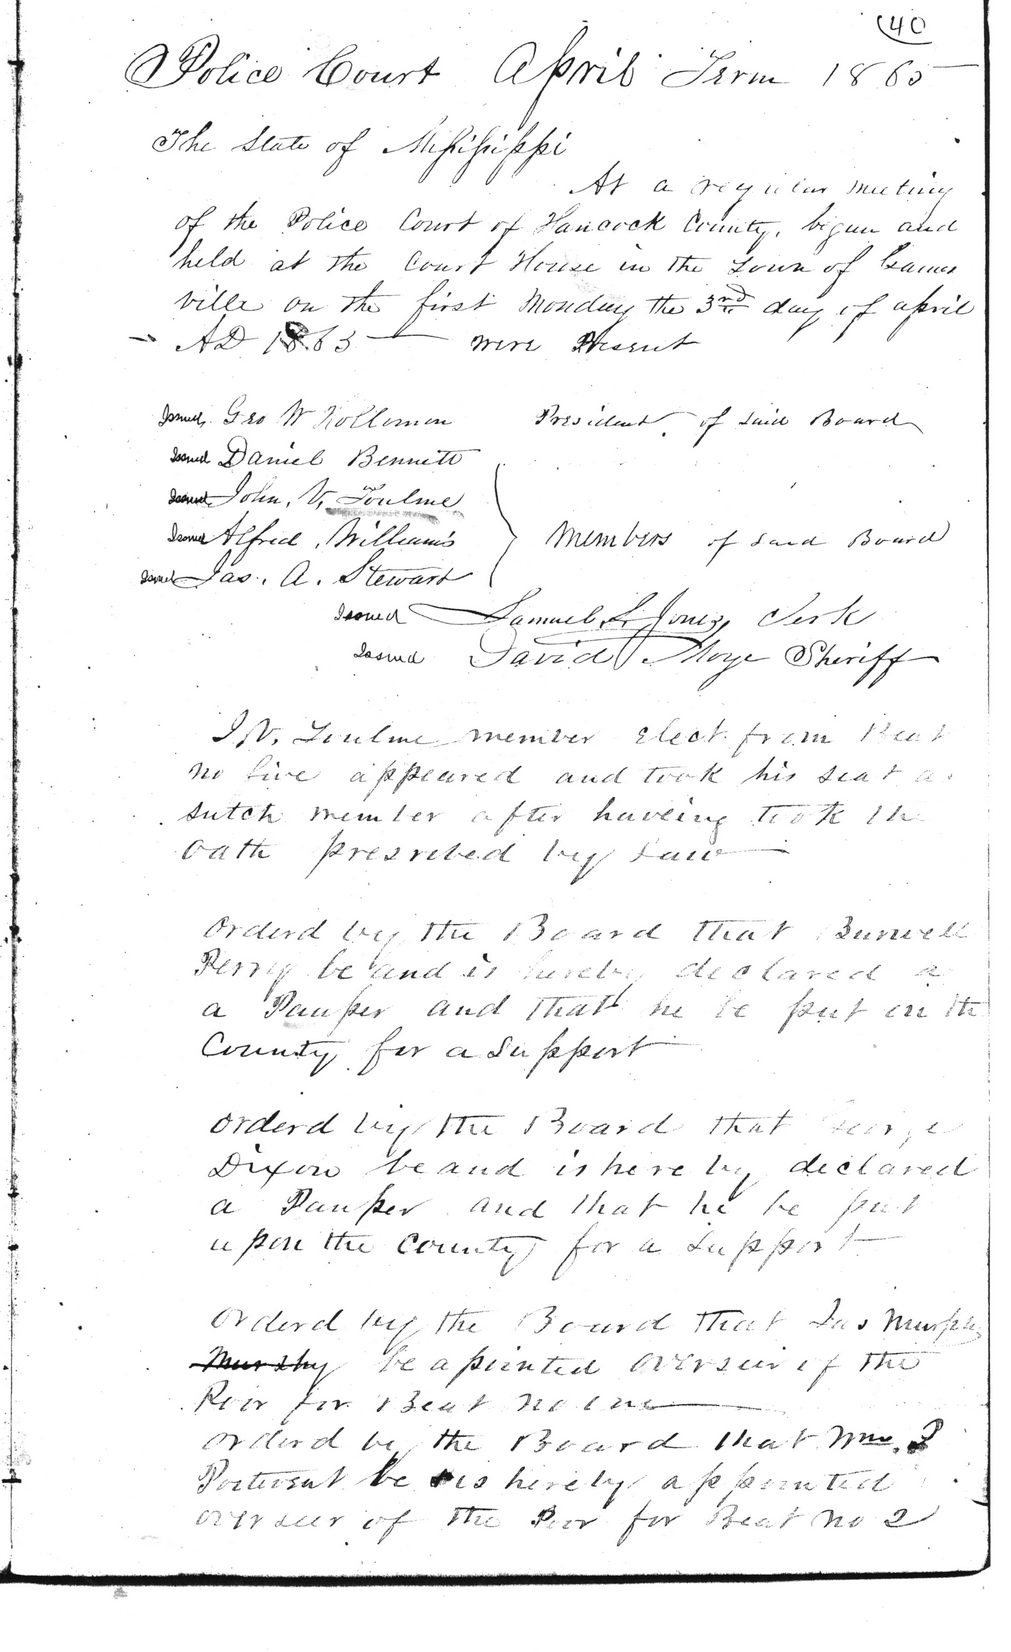 40
Police Court April Term 1865
The State of Mississippi
At a regular meeting
of the Police Court of Hancock County, begun and
held at the Court House in the Town of Gaines
ville on the first Monday the 3rd day of april
AD 1865 — were Present
Issued Geo W Holloman President of said Board
Issued Daniel Bennett
Issued John, V, Toulme
Issued Alfred Williams Members of said Board
Issued Jas. A. Stewart
Issued Samuel L. Jones, Clerk
Issued David Moye Sheriff
J, V, Toulme member elect from Beat
no five appeared and took his seat as
sutch member after haveing took the
oath presribed by Law
orderd by the Board that Burwell
Perry be and is hereby declared a
a Pauper and that he be put on the
County for a support
orderd by the Board that George
Dixon be and is here by declared
a Pauper and that he be put
upon the County for a support
orderd by the Board that Jas Murphy
be apointed overseer of the
Poor for Beat no one
orderd by the Board that Wm. J
Poitevent be is hereby appointed
overseer of the Poor for Beat no 2